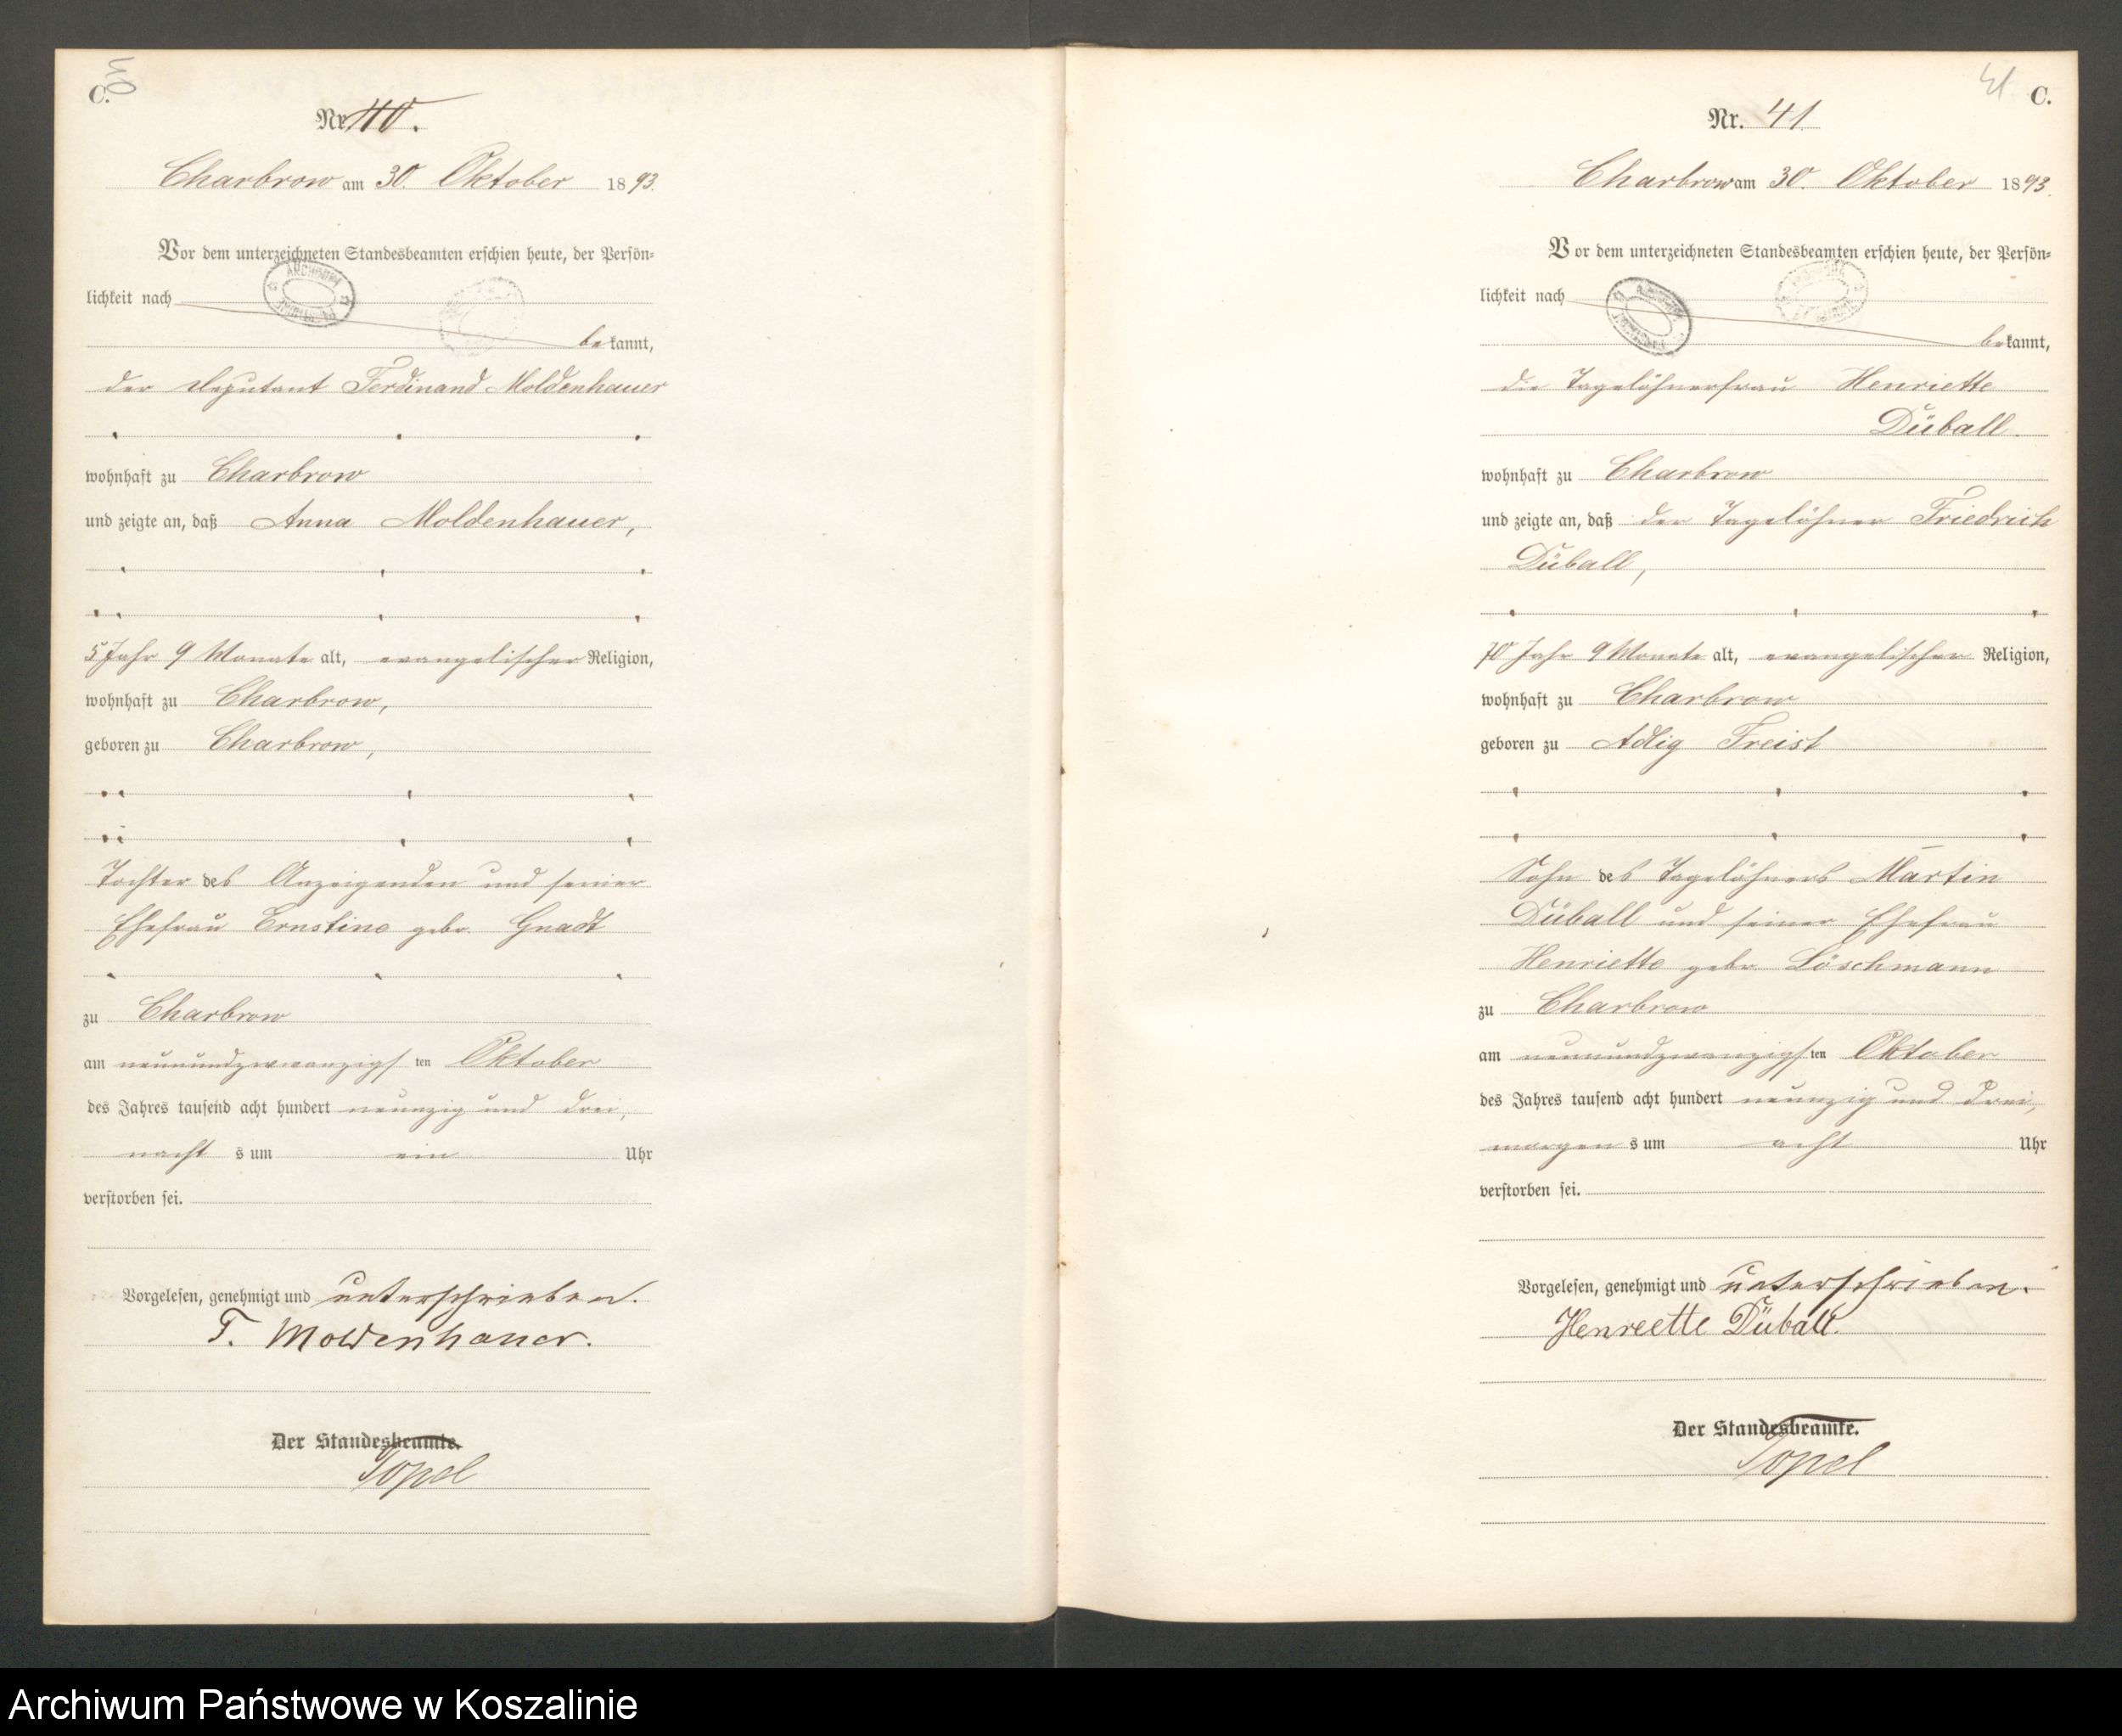 C.
Nr 40.
Charbrow am 30. Oktober 1893.
Vor dem unterzeichneten Standesbeamten erschien heute, der Persön-
lichkeit nach
bekannt,
der Deputant Ferdinand Moldenhauer
wohnhaft zu Charbrow
und zeigte an, daß Anna Moldenhauer,
5 Jahr 9 Monate alt, evangelischer Religion,
wohnhaft zu Charbrow,
geboren zu Charbrow,
Tochter des Anzeigenden und seiner
Ehefrau Ernstine gebr. Gnadt
zu Charbrow
am neunundzwanzigsten Oktober
des Jahres tausend acht hundert neunzig und drei,
nachts um ein Uhr
verstorben sei.
Vorgelesen, genehmigt und unterschrieben.
F. Moldenhauer.
Der Standesbeamte.
Topel
41 C.
Nr. 41
Charbrow am 30. Oktober 1893.
Vor dem unterzeichneten Standesbeamten erschien heute, der Persön-
lichkeit nach
bekannt,
die Tagelöhnerfrau Henriette
Düball.
wohnhaft zu Charbrow
und zeigte an, daß der Tagelöhner Friedrich
Düball,
70 Jahr 9 Monate alt, evangelischer Religion,
wohnhaft zu Charbrow
geboren zu Adlig Freist
Sohn des Tagelöhners Martin
Düball und seiner Ehefrau
Henriette gebr. Löschmann
zu Charbrow
am neunundzwanzigsten Oktober
des Jahres tausend acht hundert neunzig und drei,
morgens um acht Uhr
verstorben sei.
Vorgelesen, genehmigt und unterschrieben.
Henreette Düball.
Der Standesbeamte.
Topel
Archiwum Państwowe w Koszalinie